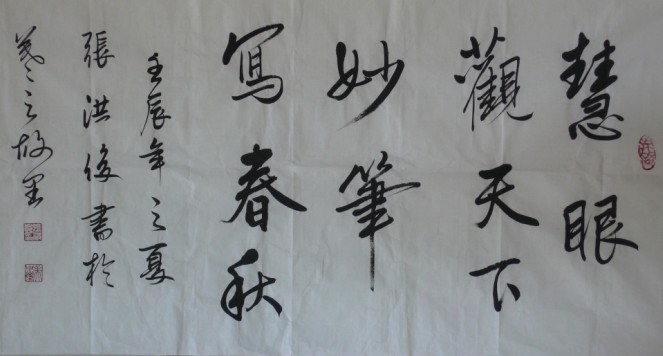 慧眼
觀天下
妙筆
寫春秋
壬辰年之夏
張洪俊書於
羲之故里